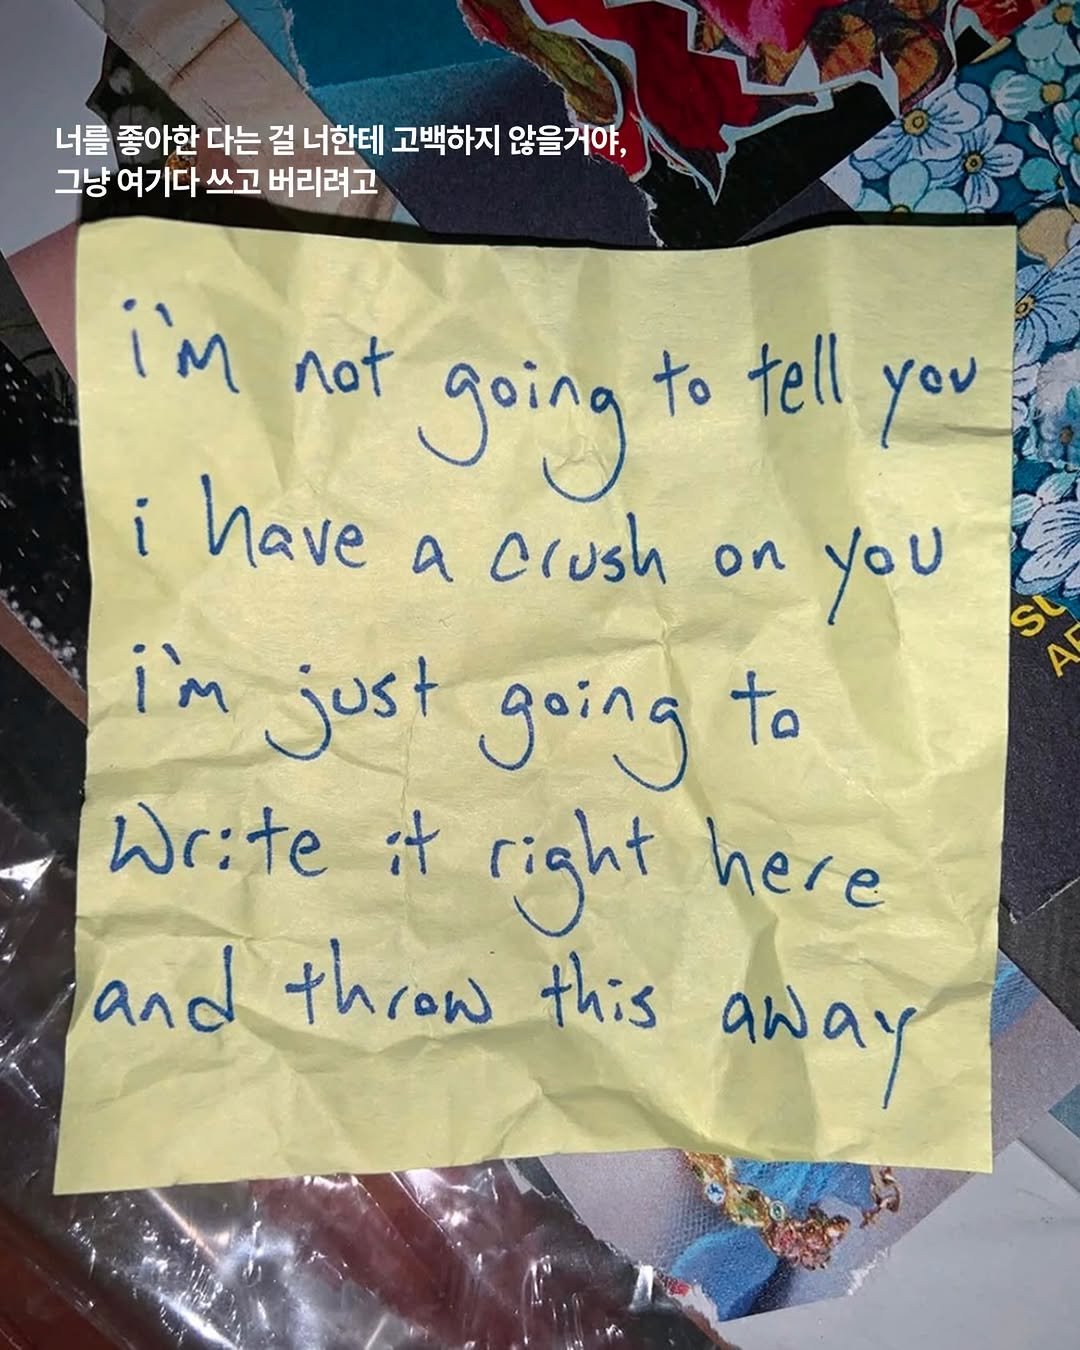 너를 좋아한 다는 걸 너한테 고백하지 않을거야,
그냥 여기다 쓰고 버리려고
i'm not going to tell you
i have a crush on you
i'm just going to
write it right here
and throw this away